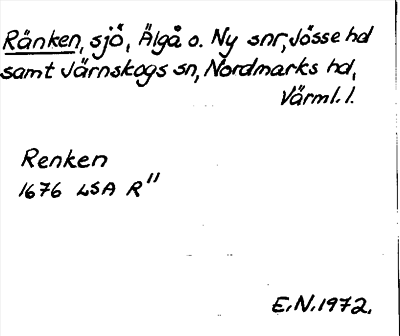 Ränken, sjö, Älgå o. Ny snr, Jösse hd
samt Järnskogs sn, Nordmarks hd,
Värml. l.
Renken
1676 LSA R"
E.N. 1972.